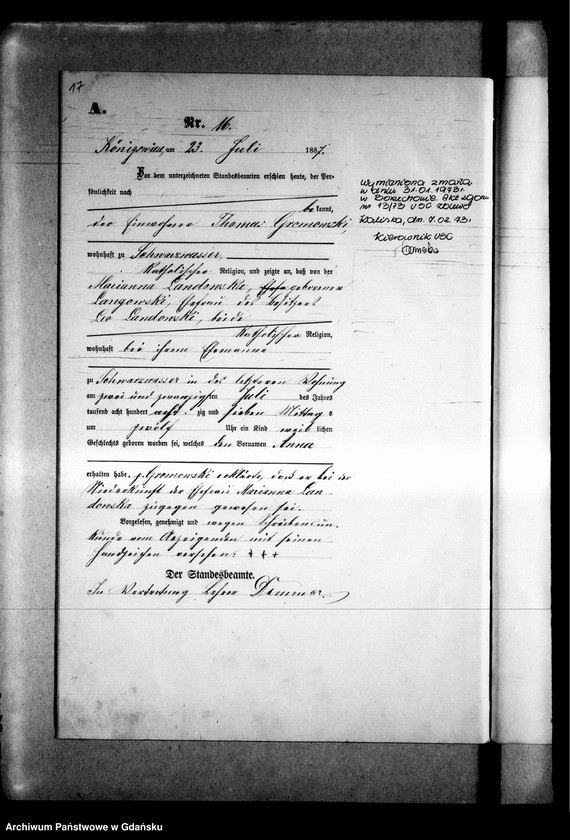 17
A.
Nr. 16.
Königswiese, am 23. Juli 1887.
Vor dem unterzeichneten Standesbeamten erschien heute, der Per-
sönlichkeit nach
bekannt,
der Einwohner Thomas Gromowski,
wohnhaft zu Schwarzwasser,
katholischer Religion, und zeigte an, daß von der
Marianna Landowska, geborenen
Langowski, Ehefrau des Besitzers
Leo Landowski, beide
katholischer Religion,
wohnhaft bei ihrem Ehemanne
zu Schwarzwasser in des letzteren Wohnung
am zwei und zwanzigsten Juli des Jahres
tausend acht hundert acht zig und sieben Mittags
um zwölf Uhr ein Kind weib lichen
Geschlechts geboren worden sei, welches den Vornamen Anna
erhalten habe. p. Gromowski erklärte, dass er bei der
Niederkunft der Ehefrau Marianna Lan-
dowska zugegen gewesen sei.
Vorgelesen, genehmigt und wegen Schreibensun-
kunde vom Anzeigenden mit seinen
Handzeichen versehen: + + +
Der Standesbeamte.
In Vertretung Lehrer
Wymieniona zmarła
w dniu 31.01.1973r.
w Borzechowie. Akt zgonu
nr 13/73 USC Zblewo
Kaliska, dn. 7.02.73r.
Kierownik USC
Archiwum Państwowe w Gdańsku